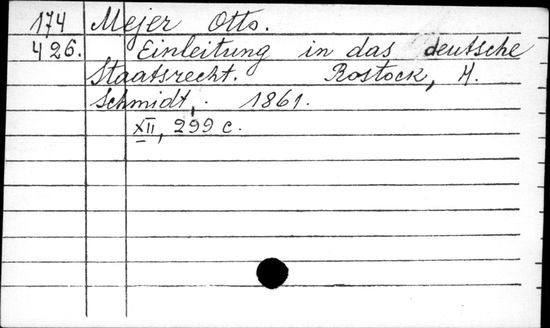 174 Mejer Otto.
426. Einleitung in das deutsche
Staatsrecht. Rostock, H.
Schmidt, . 1861.
XII, 299 c.